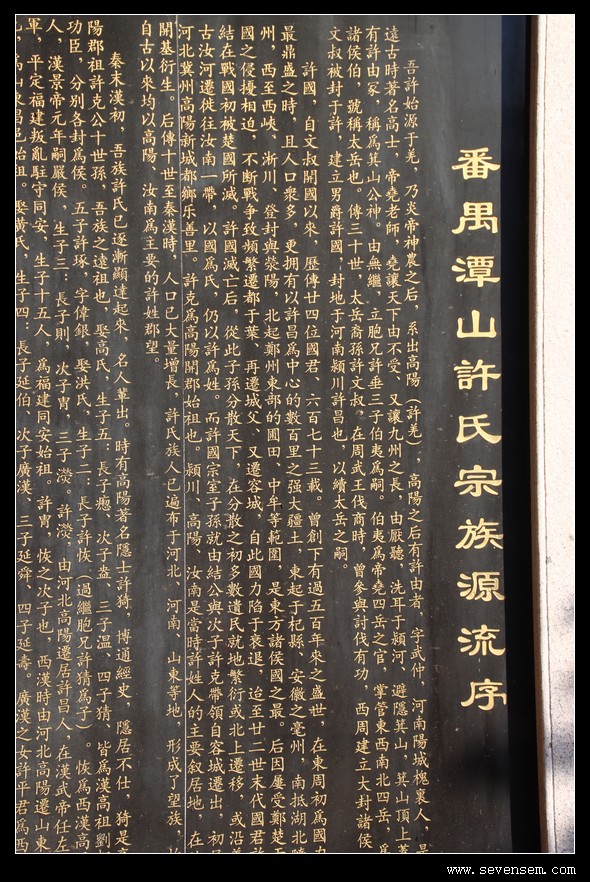 番禺潭山許氏宗族源流序
吾許始源于羌，乃炎帝神農之后，系出高陽（許羌），高陽之后有許由者，字武仲，河南陽城槐裏人，是
遠古時著名高士，帝堯老師，堯讓天下由不受、又讓九州之長，由厭聽，洗耳于颍河，避隱箕山，箕山頂上蓋
有許由冢，稱爲箕山公神。由無繼，立胞兄許垂三子伯夷爲嗣。伯夷爲帝堯四岳之官，掌管東西南北四岳，爲
諸侯伯，號稱太岳也。傳三十世，太岳裔孫許文叔。在周武王伐商時，曾參與討伐有功，西周建立大封諸侯
文叔被封于許，建立男爵許國，封地于河南颍川許昌也，以續太岳之嗣。
許國，自文叔開國以來，歷傳廿四位國君、六百七十三載。曾創下有過五百年來之盛世，在東周初爲國力
最鼎盛之時，且人口衆多，更拥有以許昌爲中心的數百里之强大疆土，東起于杞縣、安徽之亳州，南抵湖北隨
州，西至西峡、淅川、登封與滎陽，北起鄭州東部的圃田、中牟等範圍，是東方諸侯國之最。后因屢受鄭楚
國之侵擾相迫，不断戰争致頻繁遷都于葉、再遷城父、又遷容城，自此國力陷于衰退，迨至廿二世末代國君許
結在戰國初被楚國所滅。許國滅亡后，從此子孫分散天下，在分散之初多數遺民就地繁衍或北上遷移，或沿着
古汝河遷徙往汝南一帶，以國爲氏，仍以許爲姓。而許國宗室子孫就由結公與次子許克帶領自容城遷出，初居
河北冀州高陽新城都鄉乐善里。許克爲高陽開郡始祖也。颍川、高陽、汝南是當時許姓人的主要叙居地，在
開基衍生。后傳十世至秦漢時，人口已大量增長，許氏族人已遍布于河北、河南、山東等地，形成了望族，
自古以來均以高陽、汝南爲主要的許姓郡望。
秦末漢初，吾族許氏已逐漸顯達起來，名人輩出。時有高陽著名隱士許猗，博通經史，隱居不仕，猗是高
陽郡祖許克公十世孫，吾族之遠祖也，娶高氏，生子五：長子瘛、次子盎、三子温、四子猜、皆爲漢高祖劉
功臣，分别各封爲侯。五子許琢，字偉銀，娶洪氏，生子二：長子許恢（過繼胞兄許猜爲子）。恢爲西漢高
人，漢景帝元年嗣嚴侯，生子三，長子則，次子胄，三子濙。許濙，由河北高陽遷居許昌人，在漢武帝任左
軍，平定福建叛亂駐守同安，生子十五人，爲福建同安始祖。許胄，恢之次子也，西漢時由河北高陽遷山東
始祖。娶黄氏，生子四：長子延伯、次子廣漢、三子延舜、四子延壽。廣漢之女許平君爲西
www.sevensem.com